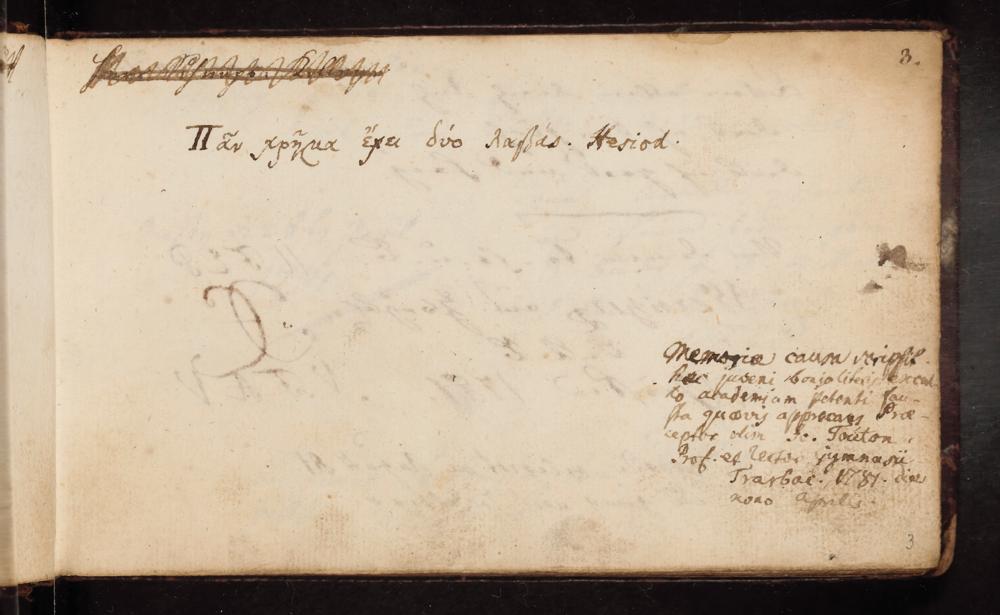 3.
Πᾶν χρῆμα ἔχει δύο λαβάς. Hesiod.
Memoriæ causa scripsit
hæc juveni bonis literis excul-
to academiam petenti fau-
sta quævis apprecans Præ-
ceptor olim Jo. Touton
Prof. et Rector gymnasii
Trarbac. 1781. die
nono Aprilis.
3